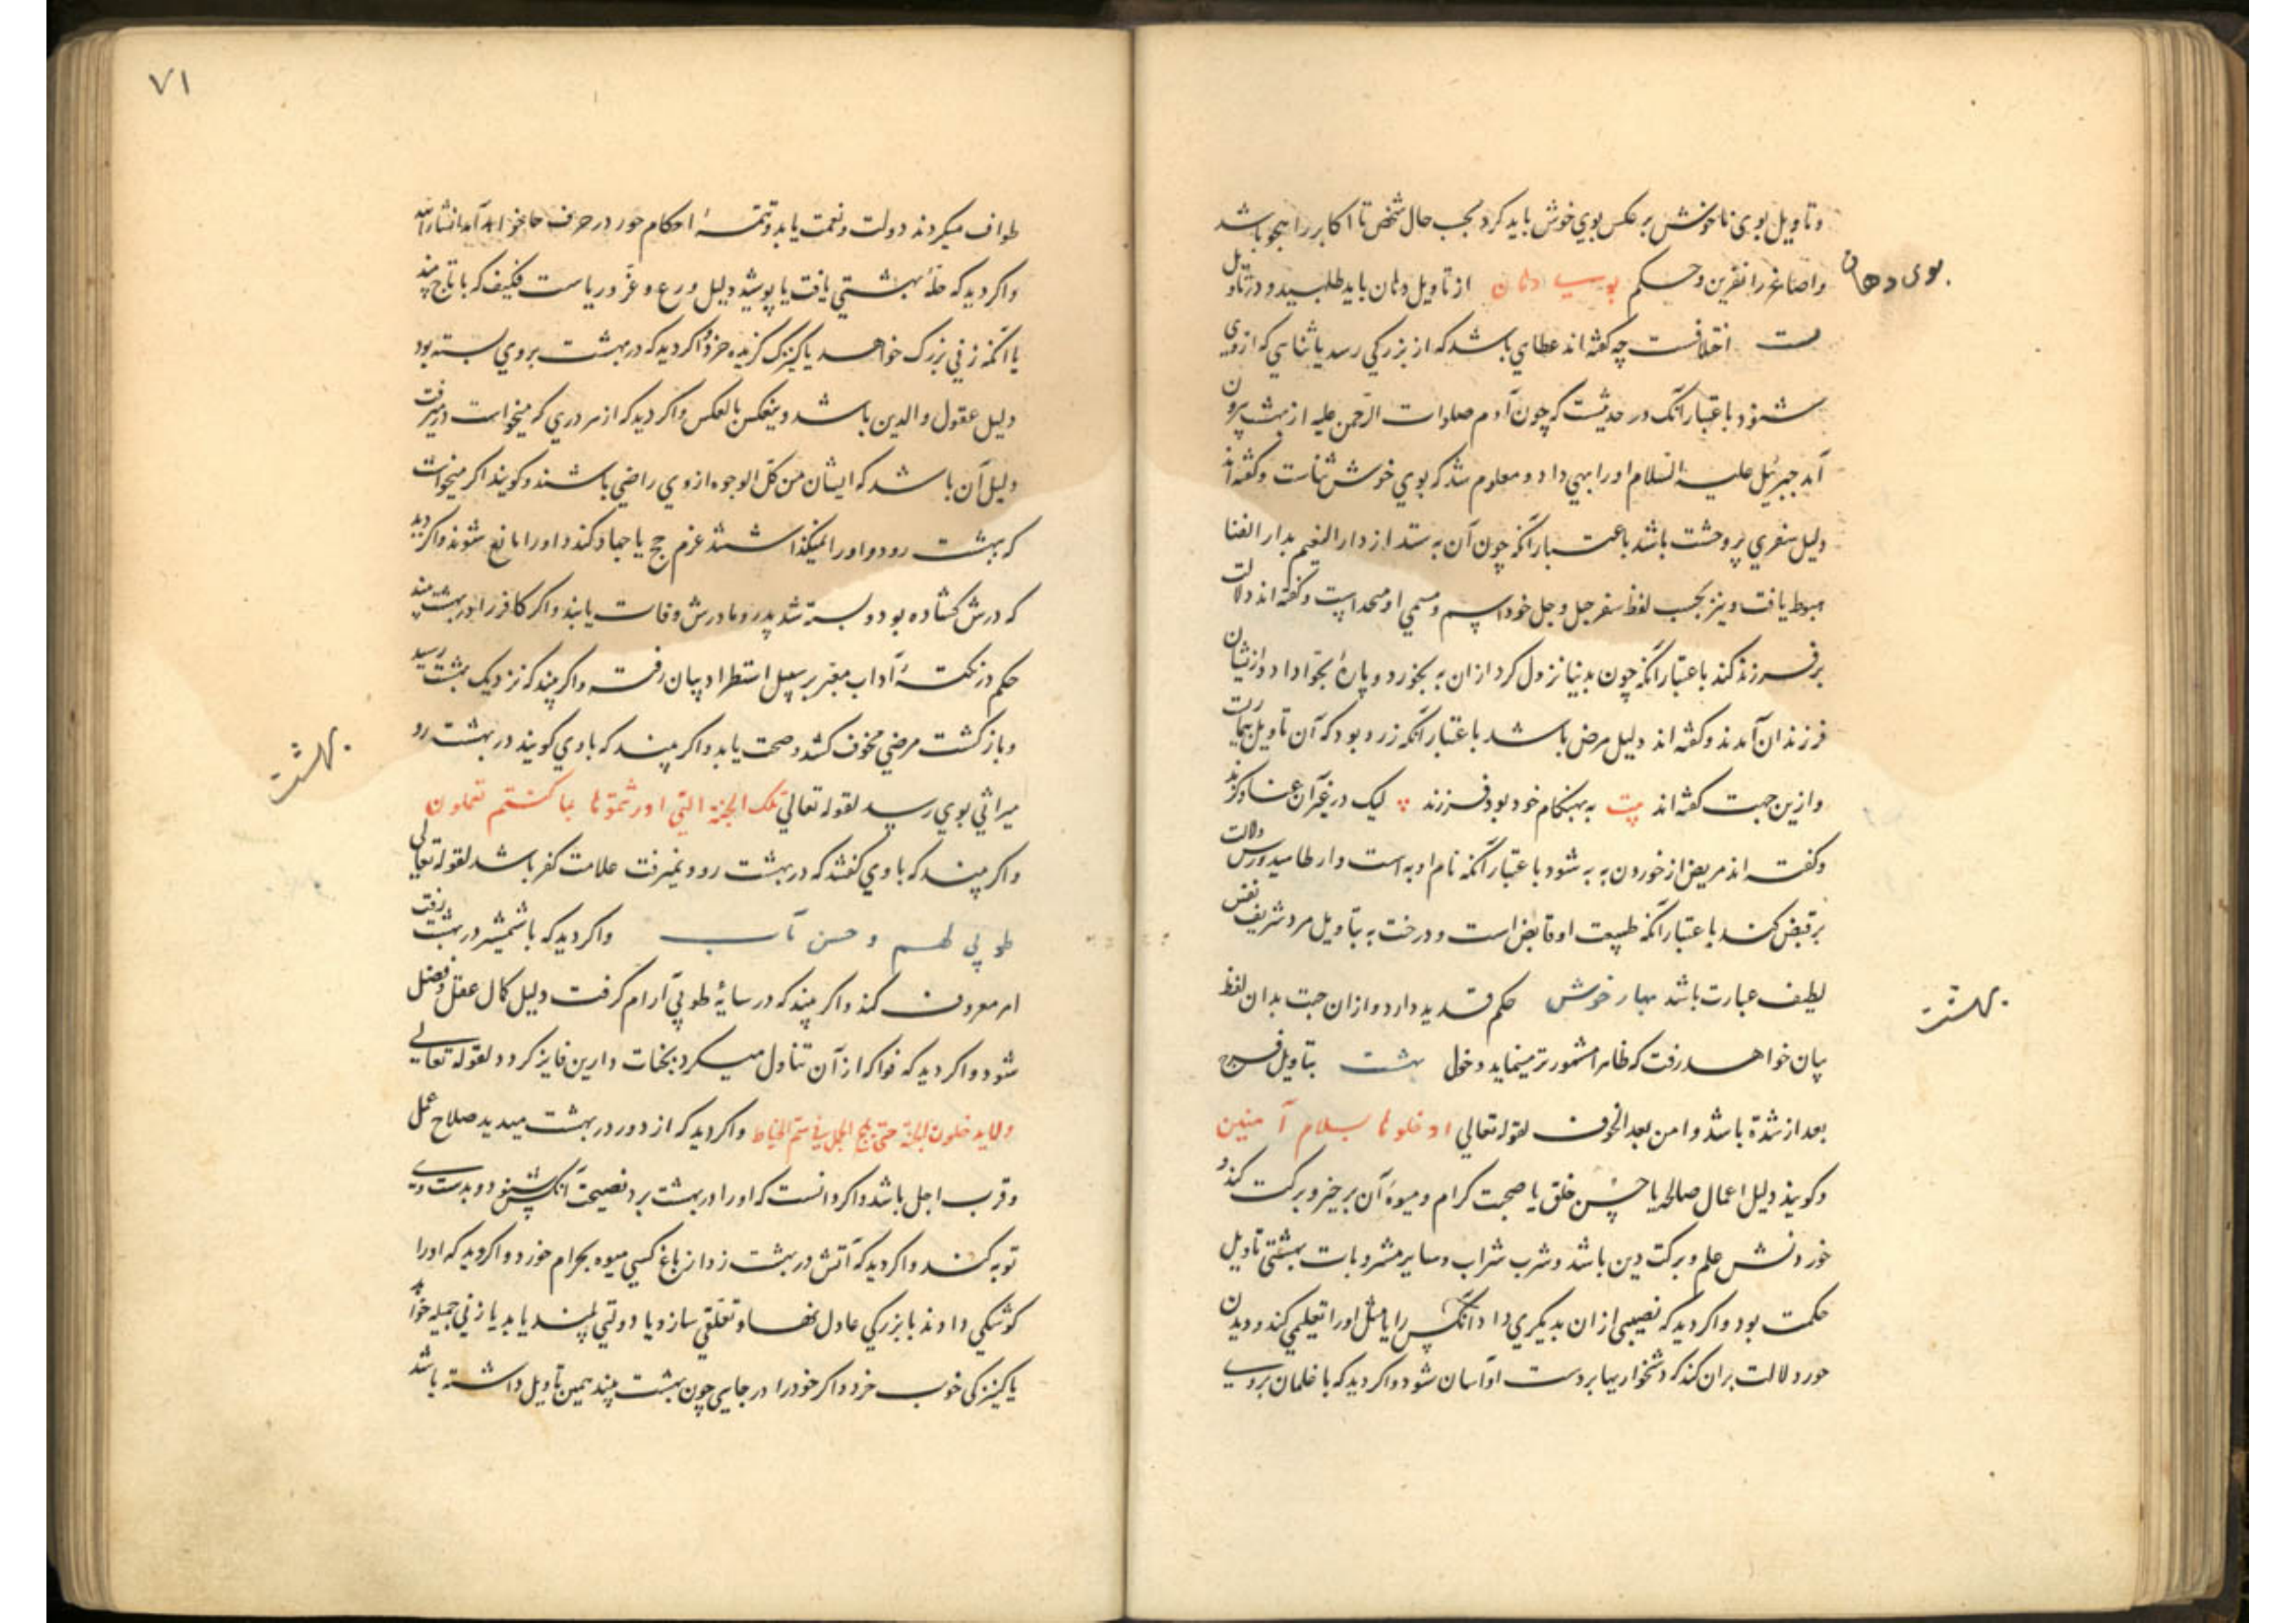 وتاویل بوی ناخوش بر عکس بوی خوش باید کرد بحسب حال شخص تا اکابر را هجو باشد
واصاغر را نفرین وحکم بوی دهان از تاویل دهان باید طلبید و در تاویل
بوی دهان
اختلافست چه گفته‌اند عطای باشد که از بزرگی رسد یا ثنایی که از وی
شنود باعتبار آنک در حدیثست که چون آدم صلوات الرحمن علیه از بهشت بیرون
آمد جبرئیل علیه السلام او را بهی داد و معلوم شد که بوی خوش ثناست وگفته‌اند
دلیل سفری پر وحشت باشد باعتبار آنکه چون آن به ستد از دار النعیم بدار الفنا
هبوط یافت ونیز بحسب لفظ سفرجل وجل خود اسم ومسمی او متحد است وگفته‌اند دلالت
بر فرزند کند باعتبار آنکه چون بدنیا نزول کرد از ان به بخورد و پارهٔ بحوا داد و از ایشان
فرزندان آمدند وگفته اند دلیل مرض باشد باعتبار آنکه زرد بود که آن تاویل بیماریست
وازین جهت گفته اند بیت به بهنکام خود بود فرزند لیک در غیر آن عنا وگزند
وگفته اند مریض از خوردن به به شود باعتبار آنکه نام او به است وارطامیدورس دلالت
بر قبض کند باعتبار آنکه طبیعت او قابض است ودرخت به بتاویل مرد شریف نفس
لطیف عبارت باشد بهار خوش حکم قدید دارد وازان جهت بدان لفظ
بیان خواهد رفت که ظاهرا مشهورتر مینماید دخول بهشت بتاویل فرج
بهشت
بعد از شدة باشد وامن بعد الخوف لقوله تعالی ادخلوها بسلام آمنین
وگویند دلیل اعمال صالحه یا حسن خلق یا صحبت کرام ومیوهٔ آن بر خیر وبرکت کند و
خوردنش علم وبرکت دین باشد وشرب شراب وسایر مشروبات بهشتی تاویل
حکمت بود واکر دید که نصیبی از ان بدیگری داد آنکس را یا مثل او را تعلیمی کند ودیدن
حور دلالت بران کند که دشخواریها بر دست او آسان شود واکر دید که با غلمان بر وی
۷۱
طواف میکردند دولت ونعمت یابد وتتمهٔ احکام حور در حرف حا خواهد آمد انشاء الله
واکر دید که حلهٔ بهشتی یافت یا پوشید دلیل ورع وعز وریاست فکیف که با تاج بیند
یا آنکه زنی بزرگ خواهد یا کنیزک گزیده خرد واکر دید که در بهشت بر وی بسته بود
دلیل عقوق والدین باشد وینعکس بالعکس واکر دید که از هر دری که میخواست در میرفت
دلیل آن باشد که ایشان من کل الوجوه از وی راضی باشند وگویند اکر میخواست
که بهشت رود واو را نمیکذاشتند عزم حج یا جهاد کند واو را مانع شوند واکر دید
که درش گشاده بود وبسته شد پدر ومادرش وفات یابند واکر کافر را در بهشت بیند
حکم در نکتهٔ آداب معبر بر سبیل استطراد بیان رفت واکر بیند که نزدیک بهشت رسید
وباز کشت مرضی مخوف کشد وصحت یابد واکر بیند که با وی گویند در بهشت رو
بهشت
میراثی بوی رسد لقوله تعالی تلک الجنة التی اورثتموها بما کنتم تعملون
واکر بیند که با وی گفتند که در بهشت رو ونمیرفت علامت کفر باشد لقوله تعالی
طوبی لهم وحسن مآب واکر دید که با شمشیر در بهشت رفت
امر معروف کند واکر بیند که در سایهٔ طوبی آرام گرفت دلیل کمال عقل وفضل
شود واکر دید که فواکه از آن تناول میکرد بنجات دارین فایز کردد لقوله تعالی
ولا یدخلون الجنة حتی یلج الجمل فی سم الخیاط واکر دید که از دور در بهشت میدید صلاح عمل
وقرب اجل باشد واکر دانست که او را در بهشت برد نصیحت آنکس شنود وبدست وی
توبه کند واکر دید که آتش در بهشت زد از باغ کسی میوه بحرام خورد واکر دید که او را
کوشکی دادند با بزرگی عادل تعلقی سازد یا دولتی بلند یابد یا زنی جمیله خواهد
یا کنیزکی خوب خرد واکر خود را در جایی چون بهشت بیند همین تاویل داشته باشد